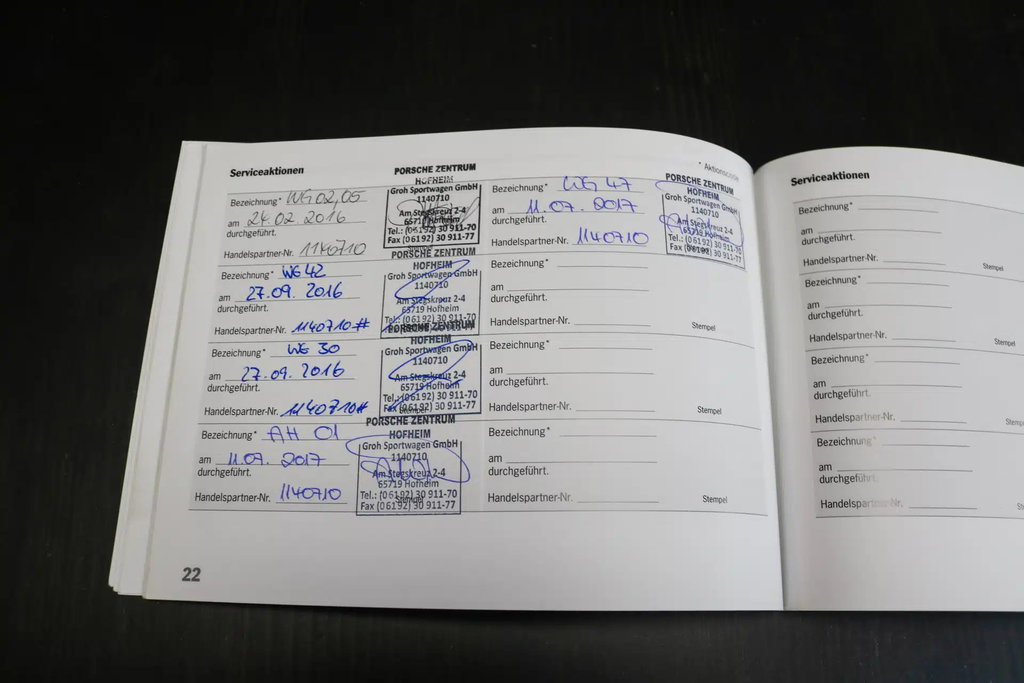 Serviceaktionen
* Aktionscode
Bezeichnung* WG 02,05
am 24.02.2016
durchgeführt.
Handelspartner-Nr. 1140710
PORSCHE ZENTRUM
HOFHEIM
Groh Sportwagen GmbH
1140710
Am Stegskreuz 2-4
65719 Hofheim
Tel.: (06192) 30 911-70
Fax (06192) 30 911-77
Bezeichnung* WG 42
am 27.09.2016
durchgeführt.
Handelspartner-Nr. 1140710#
PORSCHE ZENTRUM
HOFHEIM
Groh Sportwagen GmbH
1140710
Am Stegskreuz 2-4
65719 Hofheim
Tel.: (06192) 30 911-70
Bezeichnung* WG 30
am 27.09.2016
durchgeführt.
Handelspartner-Nr. 1140710#
PORSCHE ZENTRUM
HOFHEIM
Groh Sportwagen GmbH
1140710
Am Stegskreuz 2-4
65719 Hofheim
Tel.: (06192) 30 911-70
Fax (06192) 30 911-77
Bezeichnung* AH 01
am 11.07.2017
durchgeführt.
Handelspartner-Nr. 1140710
PORSCHE ZENTRUM
HOFHEIM
Groh Sportwagen GmbH
1140710
Am Stegskreuz 2-4
65719 Hofheim
Tel.: (06192) 30 911-70
Fax (06192) 30 911-77
Stempel
Bezeichnung* WG 47
am 11.07.2017
durchgeführt.
Handelspartner-Nr. 1140710
PORSCHE ZENTRUM
HOFHEIM
Groh Sportwagen GmbH
1140710
Am Stegskreuz 2-4
65719 Hofheim
Tel.: (06192) 30 911-70
Fax (06192) 30 911-77
Bezeichnung*
am
durchgeführt.
Handelspartner-Nr.
Stempel
Bezeichnung*
am
durchgeführt.
Handelspartner-Nr.
Stempel
Bezeichnung*
am
durchgeführt.
Handelspartner-Nr.
Stempel
22
Serviceaktionen
Bezeichnung*
am
durchgeführt.
Handelspartner-Nr.
Stempel
Bezeichnung*
am
durchgeführt.
Handelspartner-Nr.
Stempel
Bezeichnung*
am
durchgeführt.
Handelspartner-Nr.
Bezeichnung*
am
durchgeführt.
Handelspartner-Nr.